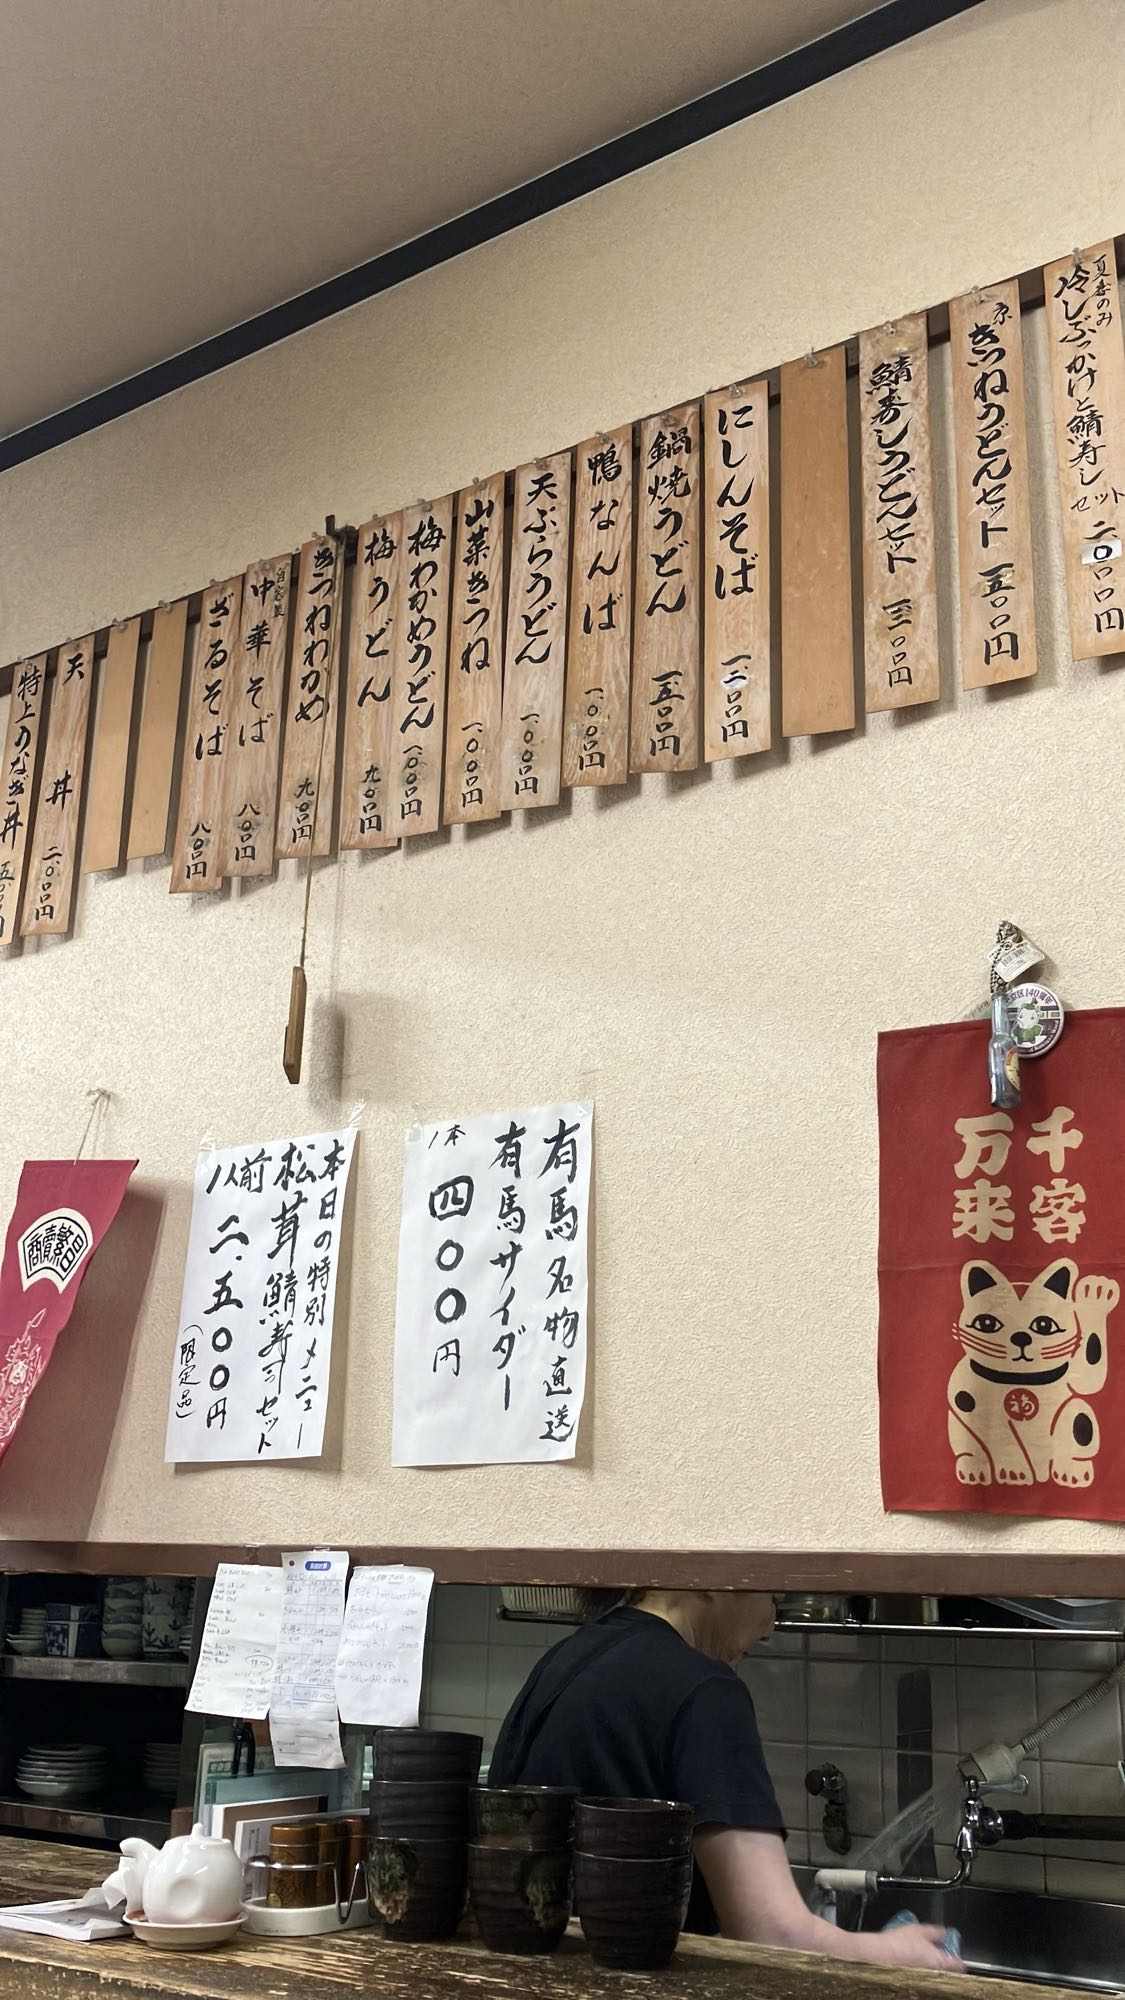 夏季のみ
冷しぶっかけと鯖寿し
セット
二〇〇〇円
京
きつねうどんセット 一五〇〇円
鯖寿しうどんセット 一三〇〇円
にしんそば 一二〇〇円
鍋焼うどん 一五〇〇円
鴨なんば 一、〇〇〇円
天ぷらうどん 一、〇〇〇円
山菜きつね 一、〇〇〇円
梅わかめうどん 一、〇〇〇円
梅うどん 九〇〇円
きつねわかめ 九〇〇円
自家製
中華そば 八〇〇円
ざるそば 八〇〇円
天丼 二、〇〇〇円
特上うなぎ丼
本日の特別メニュー
松茸鯖寿司セット
1人前 二、五〇〇円
(限定品)
有馬名物直送
有馬サイダー
1本 四〇〇円
千客
万来
福
商売繁昌